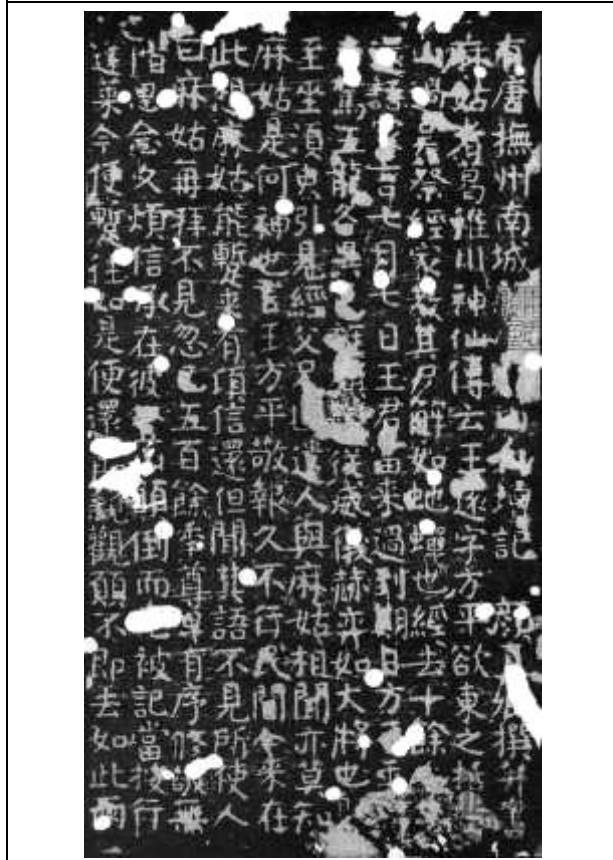 有唐撫州南城山仙壇記 顏卿撰并書
麻姑者葛稚川神仙傳云王遠字方平欲東之括
山過吳蔡經家教其尸解如蛇蟬也經去十餘
還語家言七月七日王君當來過到期日方平乘
駕五龍各異色旌從威儀赫弈如大將也
至坐須臾引見經父兄遣人與麻姑相聞亦莫知
麻姑是何神也言王方平敬報久不行民間今來在
此想麻姑能蹔來有頃信還但聞其語不見所使人
曰麻姑再拜不見忽已五百餘年尊卑有序修敬無
階思念久煩信承在彼登山顛倒而先被記當按行
蓬萊今便蹔往如是便還即親觀願不即去如此兩